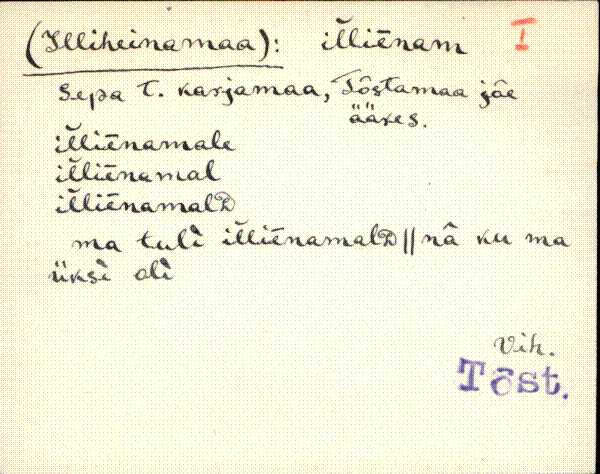 (Illiheinamaa): iĺliēnam I
Sepa t. karjamaa, Tõstamaa jõe
ääres.
iĺliēnamale
iĺliēnamal
iĺliēnamalD
ma tuli iĺliēnamalD || nâ ku ma
üksi oli
Vih.
Tõst.